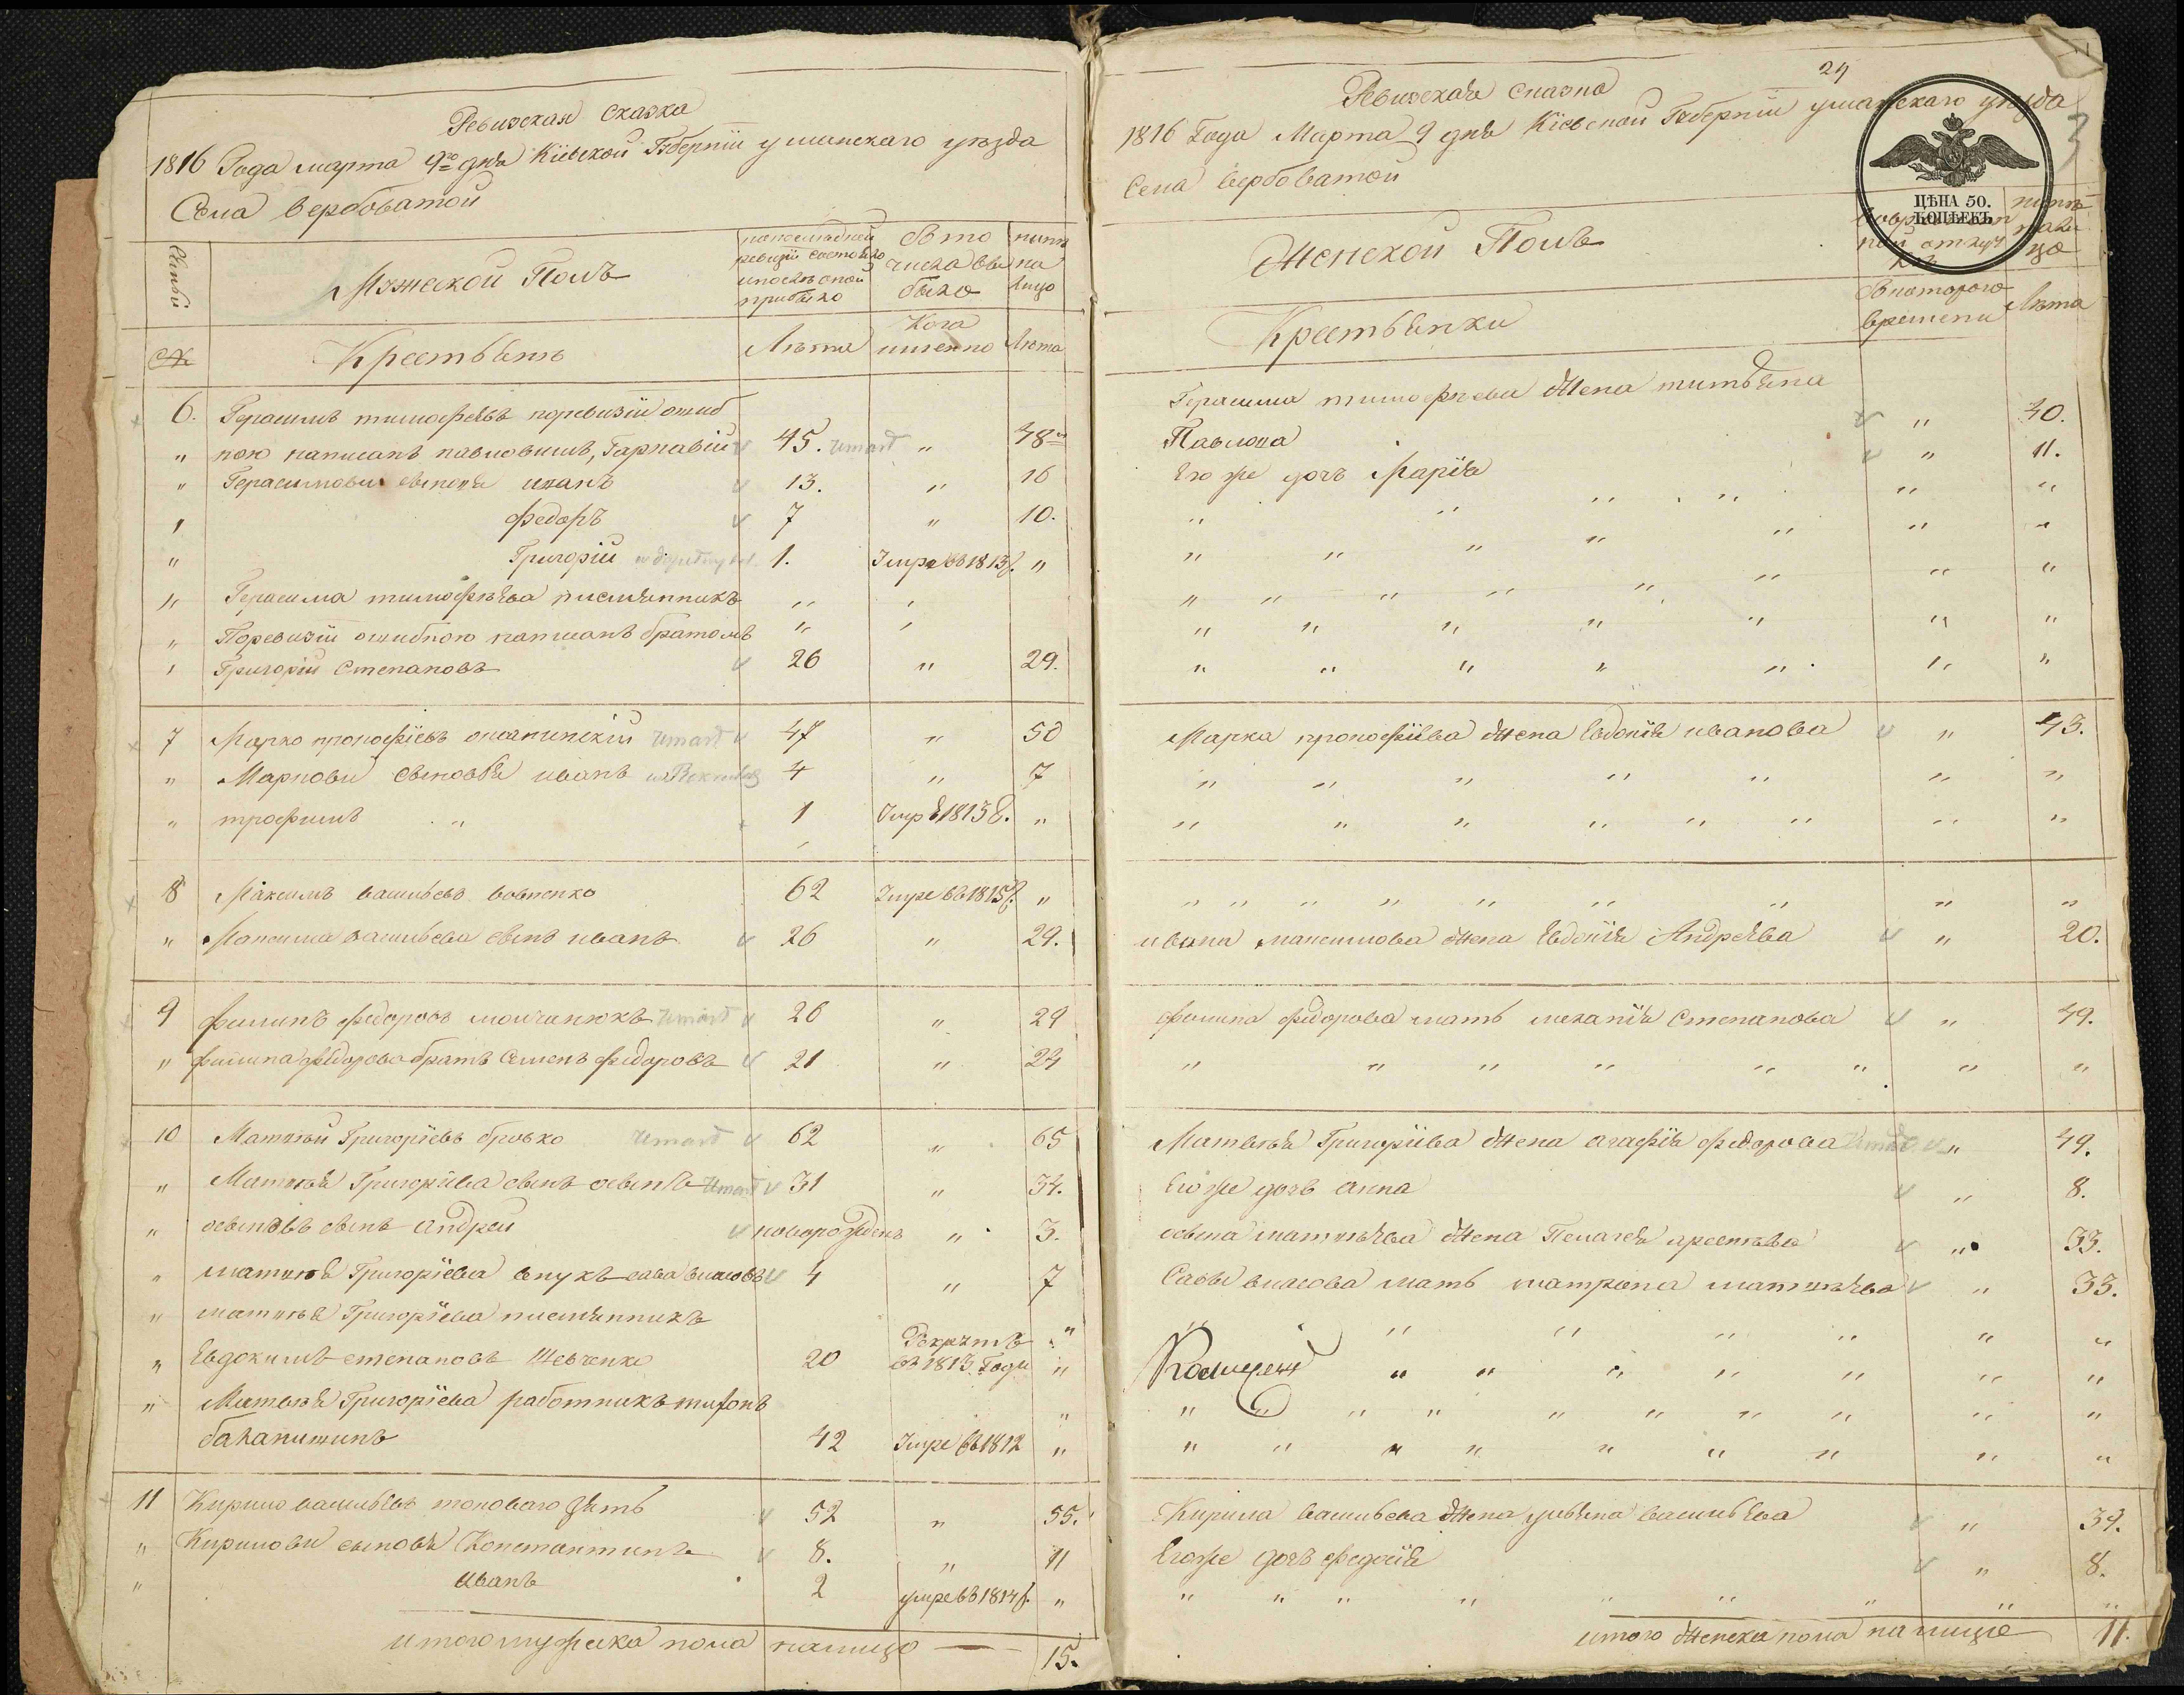 Ревизская сказка
1816 Года марта 9го дня Кіевской Губерніи уманскаго уезда
Села вербоватой
Семьи
Мужеской Полъ
по последней ревизіи состояло и после оной прибыло
Съ того числа выбыло
ныне на лицо
№
Крестьянъ
Лета
Когда именно
Лета
6. Герасимъ тимофеевъ поревизіи ошиб
" кою написанъ павловимъ, 45. umarł " 48
" Герасимови сыновя иванъ 13. " 16
" федоръ 7 " 10.
" Григорій 1. Умре въ 1813г. "
" Герасима тимофеева племянникъ " "
" Поревизіи ошибкою написанъ братомъ " "
" Григорій Степановъ 26 " 29.
7 Марко прокофіевъ umarł 47 " 50
" Маркови сыновья иванъ 4 " 7
" трофимъ " 1 Умре 1813г. "
8 Максимъ васильевъ вовненко 62 Умре въ 1815г. "
" Максима васильева сынъ иванъ 26 " 29.
9 филипъ федоровъ молчанюкъ umarł 26 " 29
" филипа федорова братъ Семенъ федоровъ 21 " 24
10 Матвей Григоріевъ бровко umarł 62 " 65
" Матвея Григоріева сынъ осыпъ umarł 31 " 34.
" осыповъ сынъ андрей новорожденъ " 3.
" матвея Григоріева внукъ сава власовъ 4 " 7
" матвея Григоріева племянникъ
" Евдокимъ степановъ Шевченко 20 Рекрутъ въ 1813 Годи "
" Матвея Григоріева работникъ "
42 Умре въ 1812 "
11 Кирило васильевъ зять 52 " 55.
" Кирилови сыновя Константинъ 8. " 11
" иванъ 2 умре въ 1814г. "
итого мужска пола налицо — 15.
24
Ревизская сказка
1816 Года Марта 9 дня Кіевской Губерніи уманскаго уезда
Села вербоватой
ЦѢНА 50.
КОПѢЕКЪ.
Женской Полъ
во временной отлучке
ныне на лицо
Крестьянки
Съ котораго времени
Лета
Герасима тимофеева Жена татьяна
Павлова " 40.
Его же дочь Марія " 11.
Марка прокофіева Жена Евдокія иванова " 43.
ивана максимова Жена Евдокія Андреева " 20.
филипа федорова мать меланія Степанова " 49.
Матвея Григоріева Жена агафія федорова umarł " 49.
Его же дочь анна " 8.
осыпа матвеева Жена Пелагея " 33.
Савы власова мать матрона матвеева " 33.
Кирила васильева Жена уляна васильева " 39.
Его же дочь федосія " 8.
итого Женска пола на лице 11.